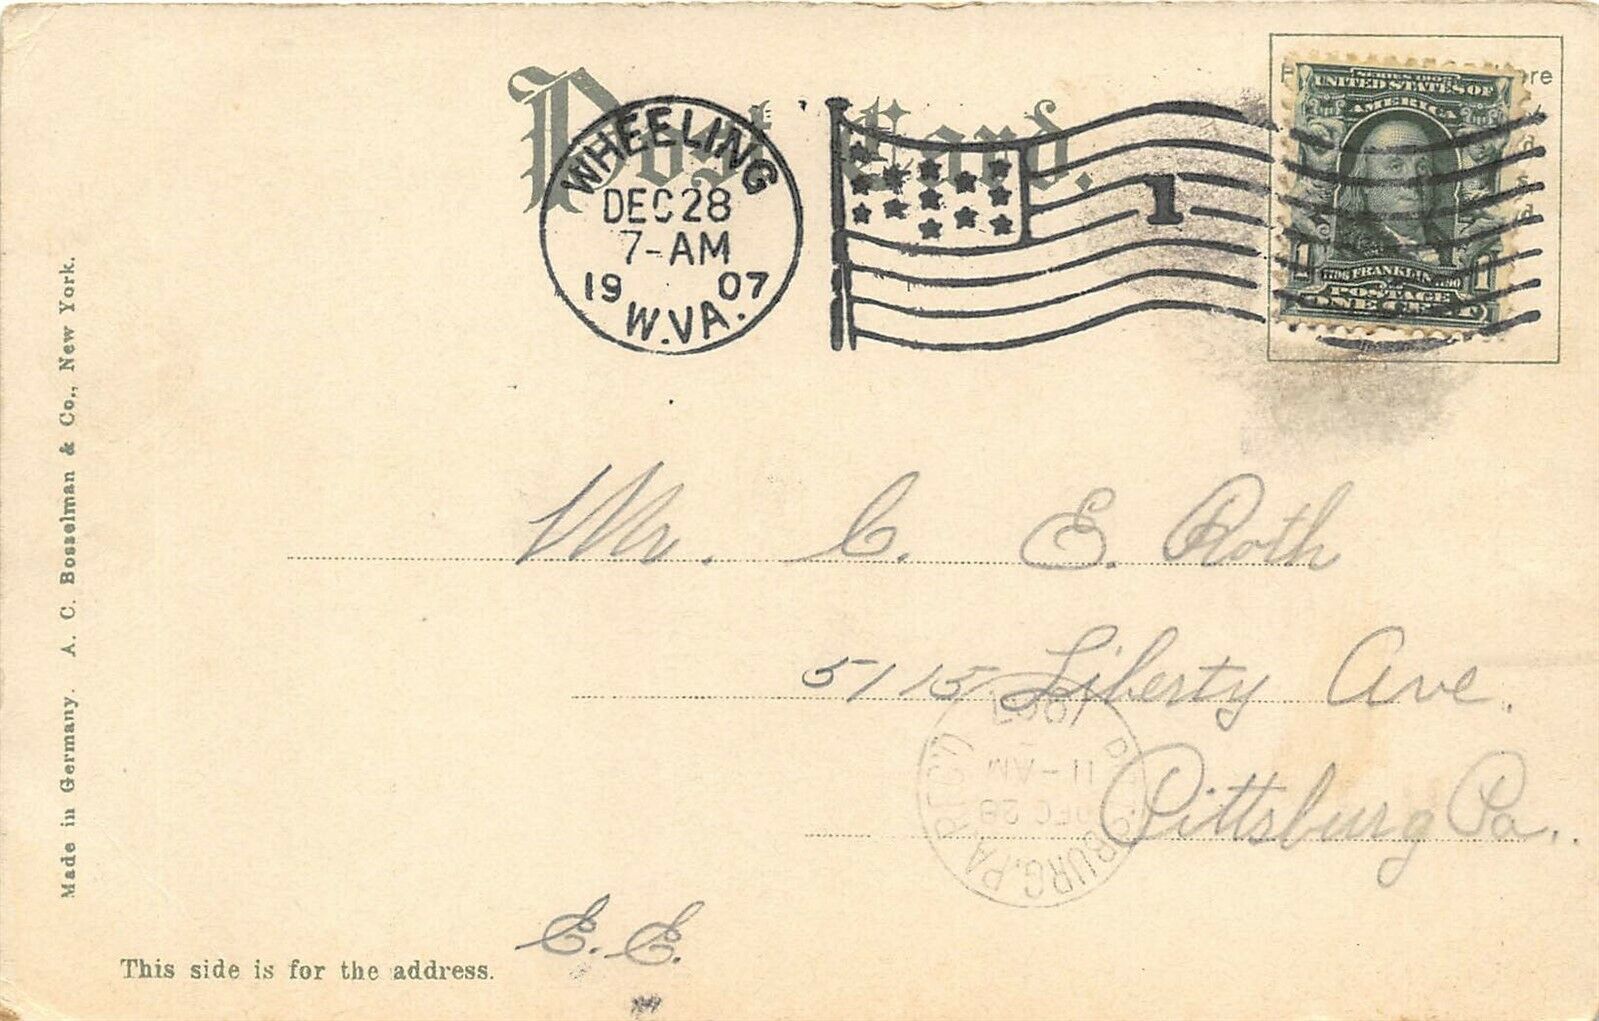 Post Card.
WHEELING
DEC 28
7-AM
19 07
W.VA.
1
SERIES 1902
UNITED STATES OF
AMERICA
1706 FRANKLIN 1790
POSTAGE
1 ONE CENT 1
Mr. C. E. Roth
5115 Liberty Ave.
Pittsburg Pa.
PITTSBURG, PA.
DEC 28
11-AM
1907
E. E.
This side is for the address.
Made in Germany. A. C. Bosselman & Co., New York.